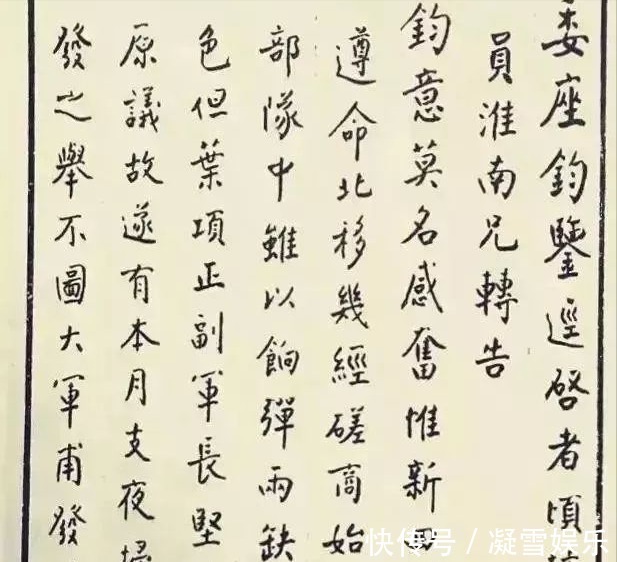 委座鈞鑒逕啓者頃
員淮南兄轉告
鈞意莫名感奮惟新
遵命北移幾經磋商始
部隊中雖以餉彈兩缺
色但葉項正副軍長堅
原議故遂有本月支夜
發之舉不圖大軍甫發
快传号/凝雪娱乐